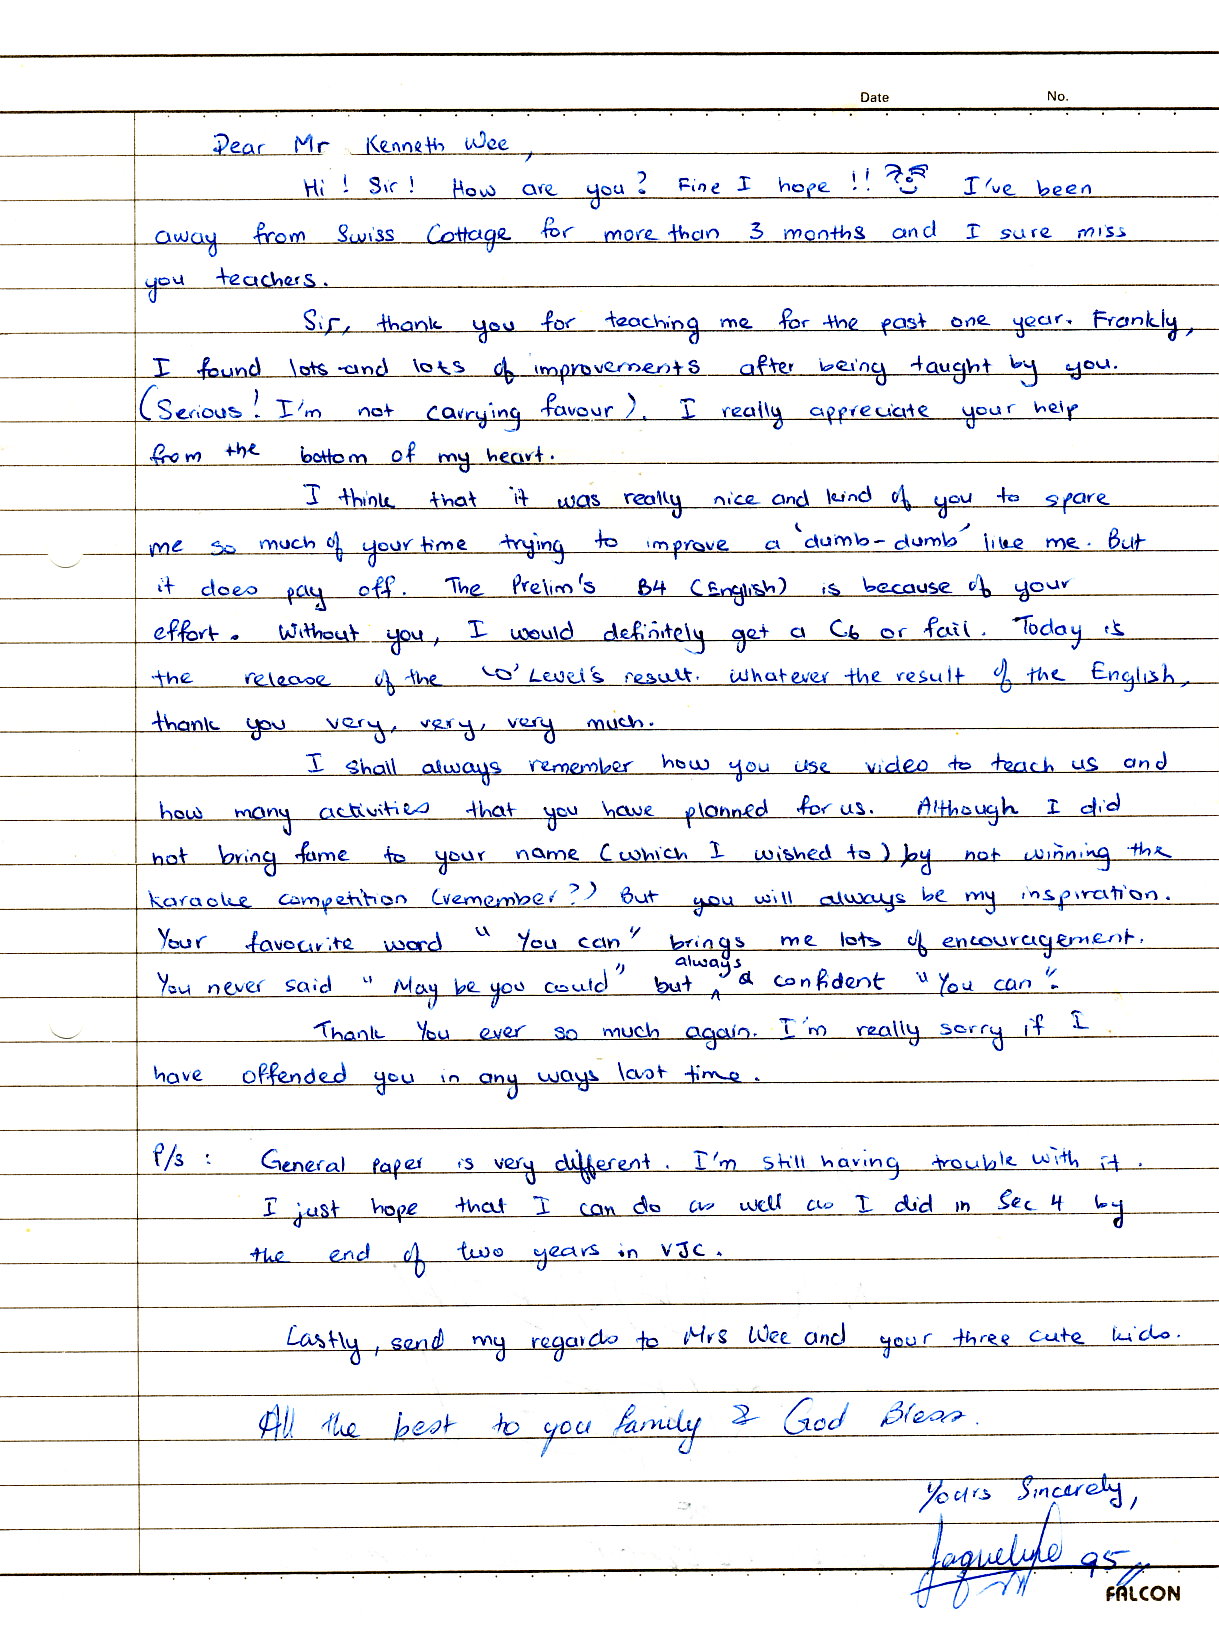 Date No.
Dear Mr Kenneth Wee,
Hi ! Sir ! How are you? Fine I hope !! I've been
away from Swiss Cottage for more than 3 months and I sure miss
you teachers.
Sir, thank you for teaching me for the past one year. Frankly,
I found lots and lots of improvements after being taught by you.
(Serious! I'm not carrying favour). I really appreciate your help
from the bottom of my heart.
I think that it was really nice and kind of you to spare
me so much of your time trying to improve a 'dumb-dumb' like me. But
it does pay off. The Prelim's B4 (English) is because of your
effort. Without you, I would definitely get a C6 or fail. Today is
the release of the 'O' Level's result. Whatever the result of the English,
thank you very, very, very much.
I shall always remember how you use video to teach us and
how many activities that you have planned for us. Although I did
not bring fame to your name (which I wished to) by not winning the
karaoke competition (remember?) But you will always be my inspiration.
Your favourite word "You can" brings me lots of encouragement.
You never said "May be you could" but always a confident "You can".
Thank You ever so much again. I'm really sorry if I
have offended you in any ways last time.
P/s : General Paper is very different. I'm still having trouble with it.
I just hope that I can do as well as I did in Sec 4 by
the end of two years in VJC.
Lastly, send my regards to Mrs Wee and your three cute kids.
All the best to you family & God Bless.
Yours Sincerely,
Jaquelyne 95
FALCON